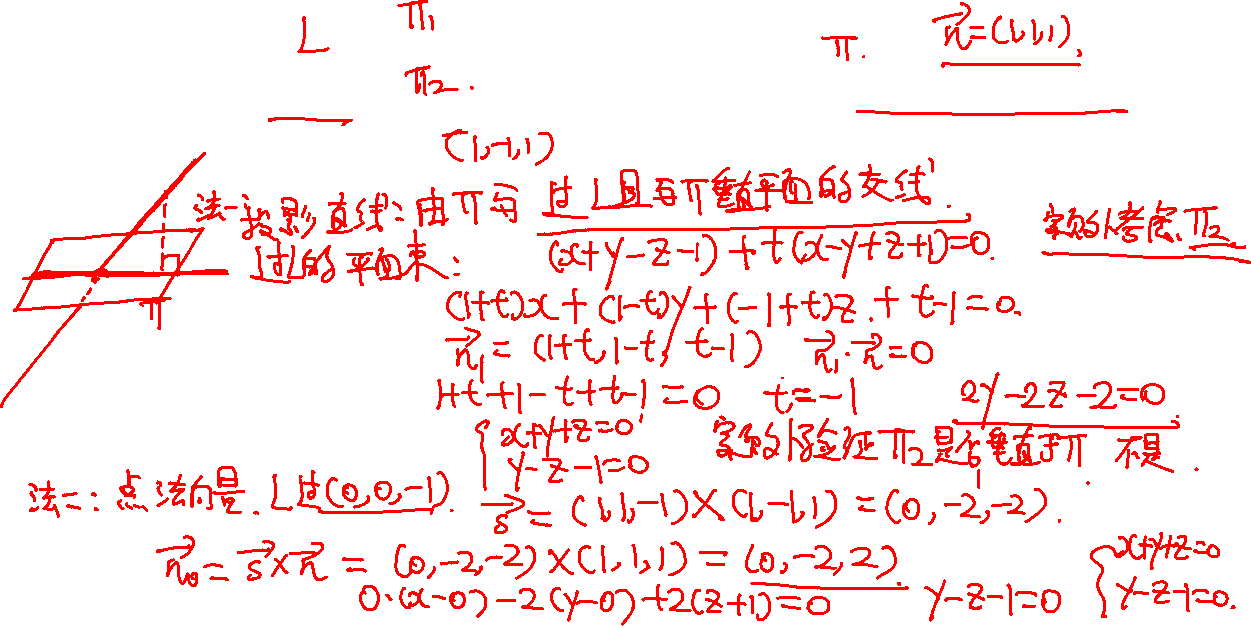 L π₁ π. n⃗=(1,1,1).
π₂.
(1,-1,1)
法一 投影直线：由π与过L且与π垂直平面的交线.
过L的平面束： (x+y-z-1)+t(x-y+z+1)=0. 实际考虑π₂
π (1+t)x+(1-t)y+(-1+t)z+t-1=0.
n⃗₁=(1+t,1-t,t-1) n⃗₁·n⃗=0
1+t+1-t+t-1=0 t=-1 2y-2z-2=0.
{x+y+z=0 y-z-1=0 验证π₂是否垂直于π 不是.
法二：点法向量. L过(0,0,-1). s⃗=(1,1,-1)×(1,-1,1)=(0,-2,-2).
n⃗₀=s⃗×n⃗=(0,-2,-2)×(1,1,1)=(0,-2,2).
0·(x-0)-2(y-0)+2(z+1)=0 y-z-1=0 {x+y+z=0 y-z-1=0.